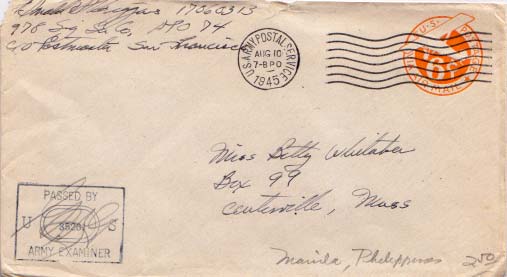 17060313
978 Sig Sv Co, APO 74
C/O Postmaster San Francisco
U.S. ARMY POSTAL SERVICE
AUG 10
7-8 PO
1945
U.S. POSTAGE
6c
AIR MAIL
Miss Betty Whitaker
Box 99
Centerville, Mass
PASSED BY
U S
35201
ARMY EXAMINER
Manila, Philippines
2.50